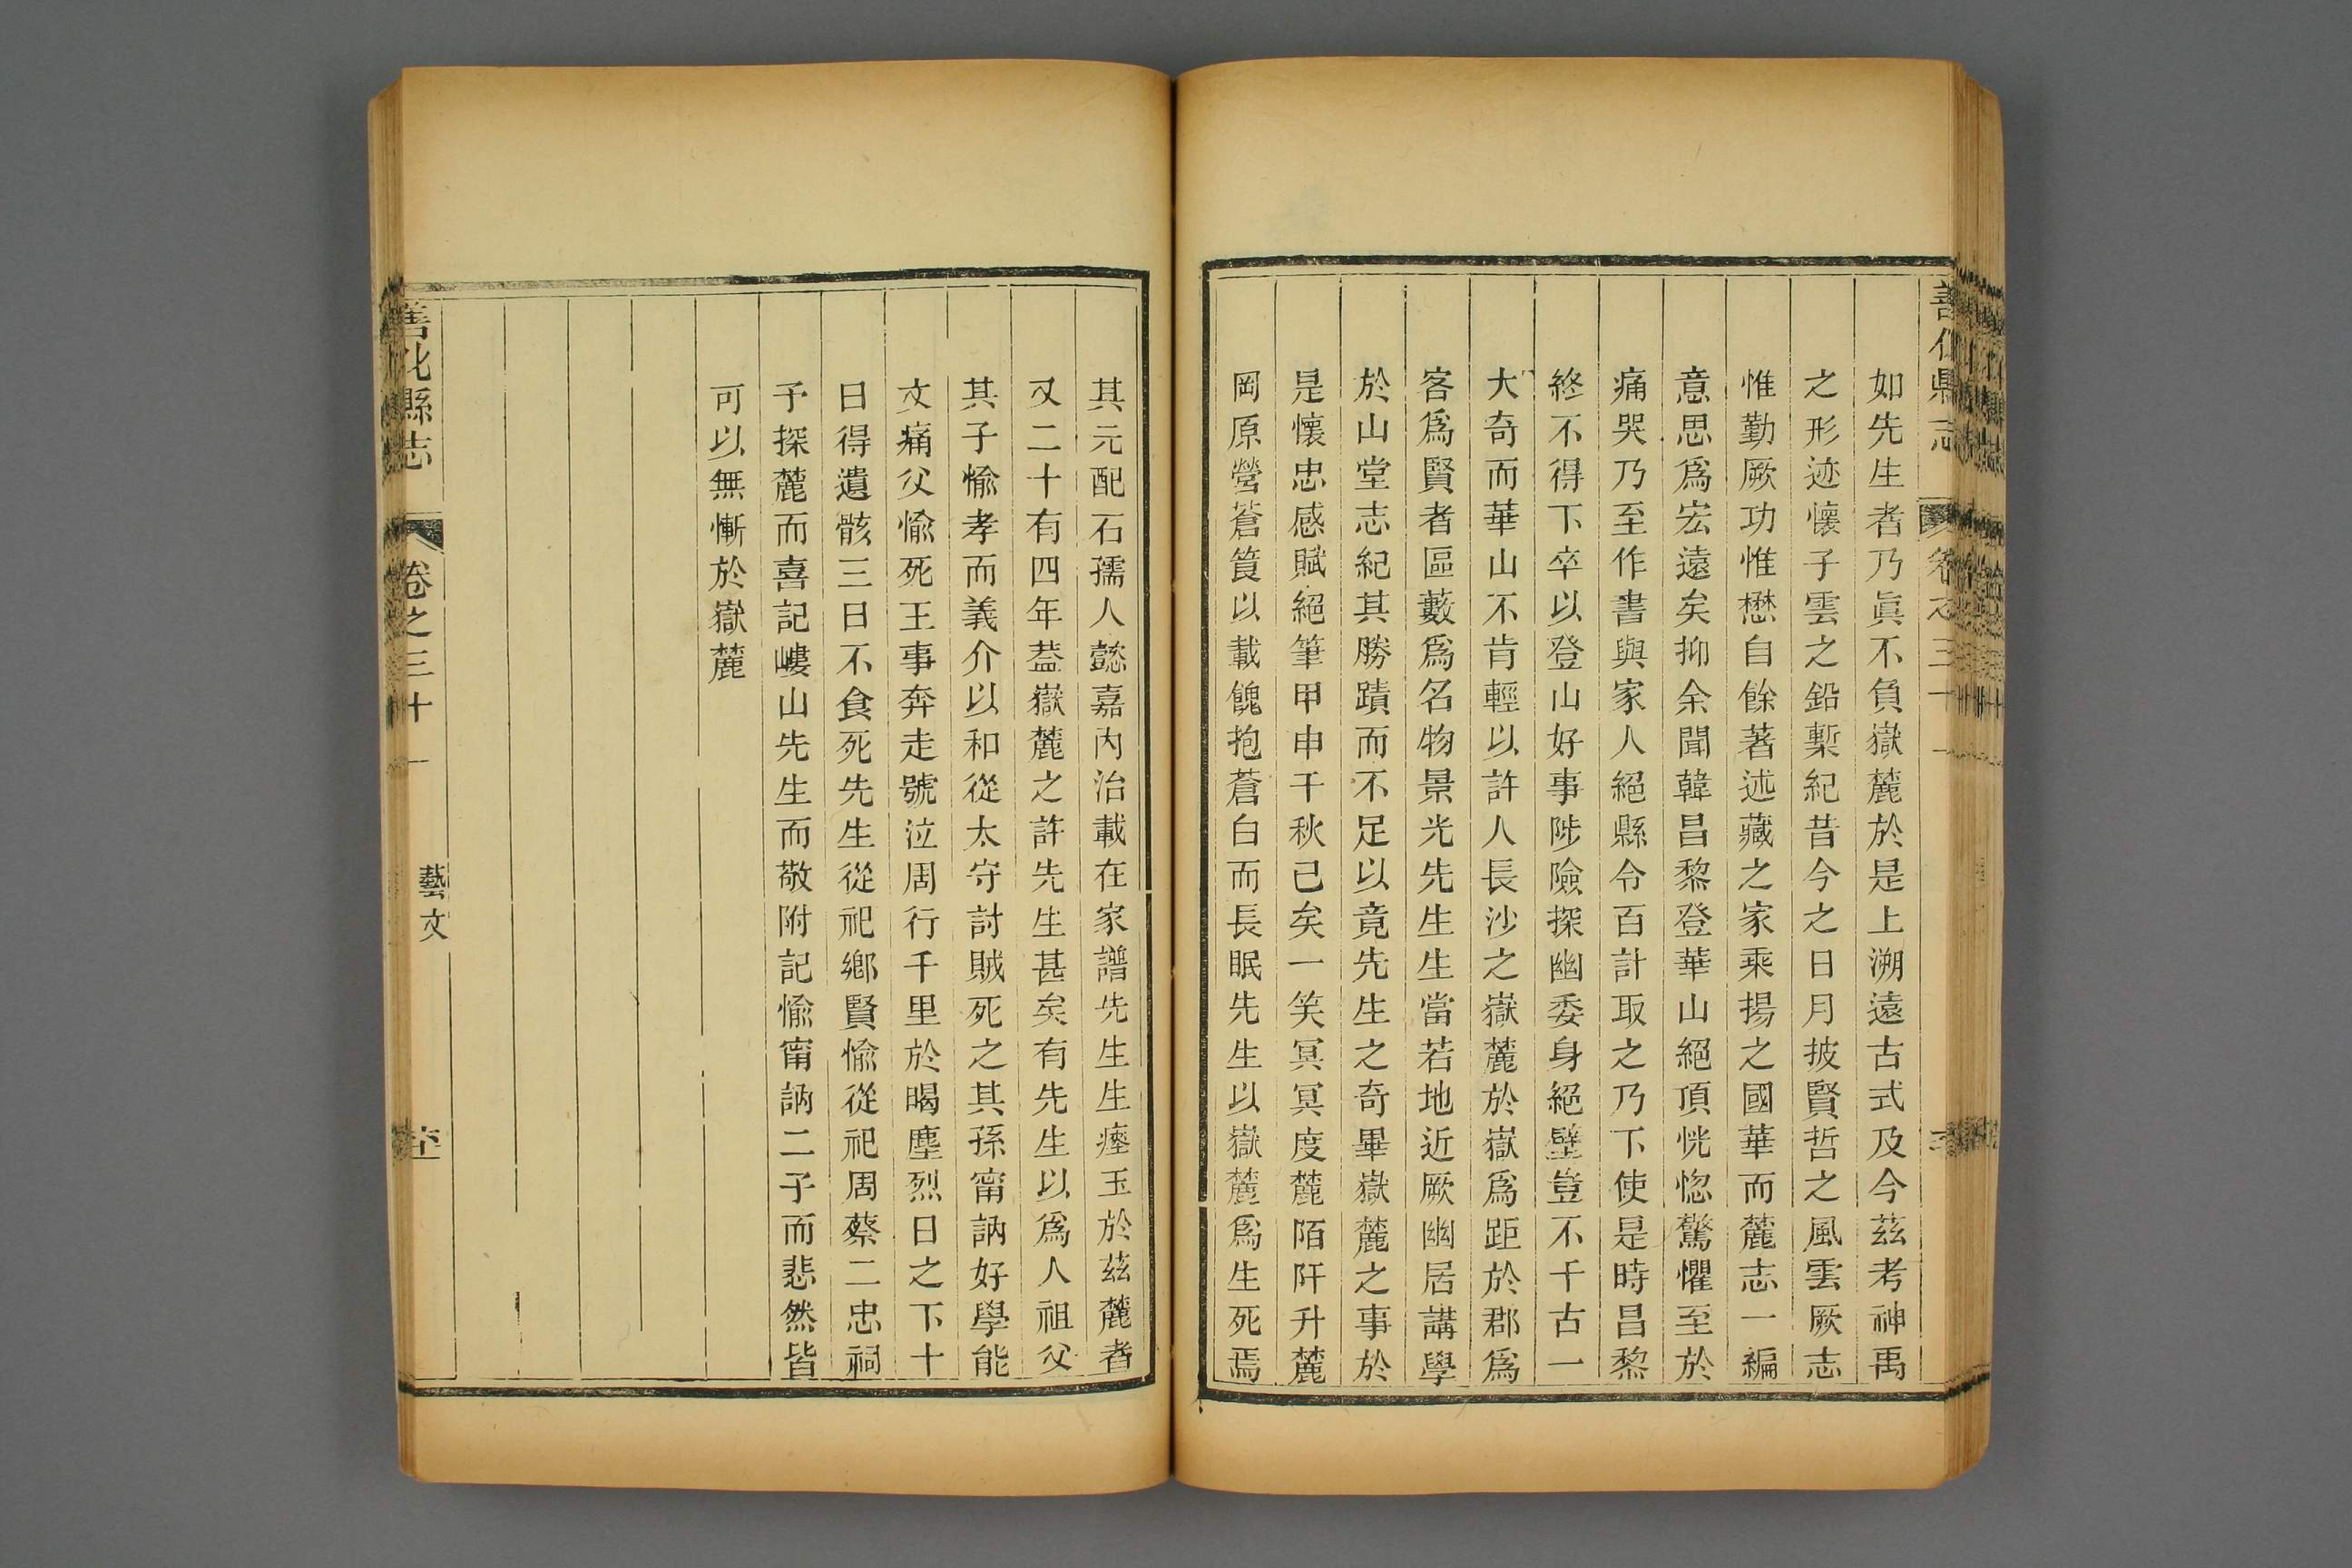 如先生者乃眞不負嶽麓於是上溯遠古式及今茲考神禹
之形迹懷子雲之鉛槧紀昔今之日月披賢哲之風雲厥志
惟勤厥功惟懋自餘著述藏之家乘揚之國華而麓志一編
意思爲宏遠矣抑余聞韓昌黎登華山絕頂恍惚驚懼至於
痛哭乃至作書與家人絕縣令百計取之乃下使是時昌黎
終不得下卒以登山好事陟險探幽委身絕壁豈不千古一
大奇而華山不肯輕以許人長沙之嶽麓於嶽爲距於郡爲
客爲賢者區藪爲名物景光先生生當若地近厥幽居講學
於山堂志紀其勝蹟而不足以竟先生之奇畢嶽麓之事於
是懷忠感賦絕筆甲申千秋己矣一笑冥冥度麓陌阡升麓
岡原營蒼筤以載餽抱蒼白而長眠先生以嶽麓爲生死焉
其元配石孺人懿嘉內治載在家譜先生生瘞玉於茲麓者
又二十有四年葢嶽麓之許先生甚矣有先生以爲人祖父
其子愉孝而義介以和從太守討賊死之其孫甯訥好學能
文痛父愉死王事奔走號泣周行千里於暍塵烈日之下十
日得遺骸三日不食死先生從祀鄉賢愉從祀周蔡二忠祠
予探麓而喜記嶁山先生而敬附記愉甯訥二子而悲然皆
可以無慚於嶽麓
善化縣志
卷之三十一
藝文